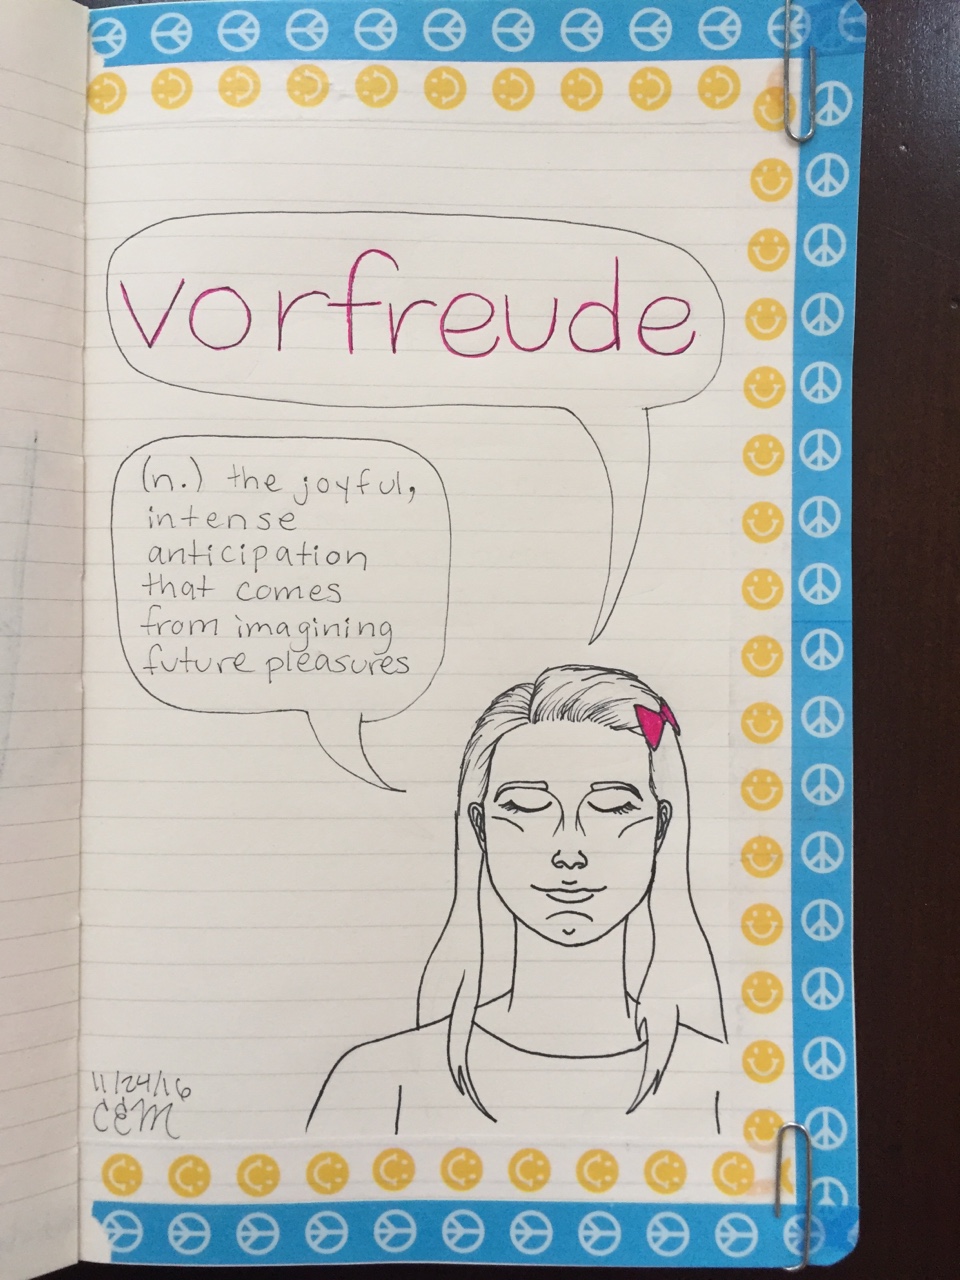 vorfreude
(n.) the joyful,
intense
anticipation
that comes
from imagining
future pleasures
11/24/16
CEM